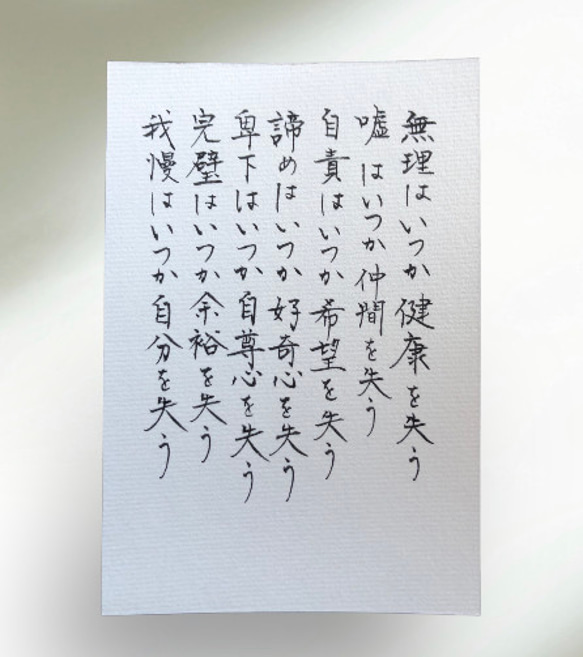 無理はいつか健康を失う
嘘はいつか仲間を失う
自責はいつか希望を失う
諦めはいつか好奇心を失う
卑下はいつか自尊心を失う
完璧はいつか余裕を失う
我慢はいつか自分を失う